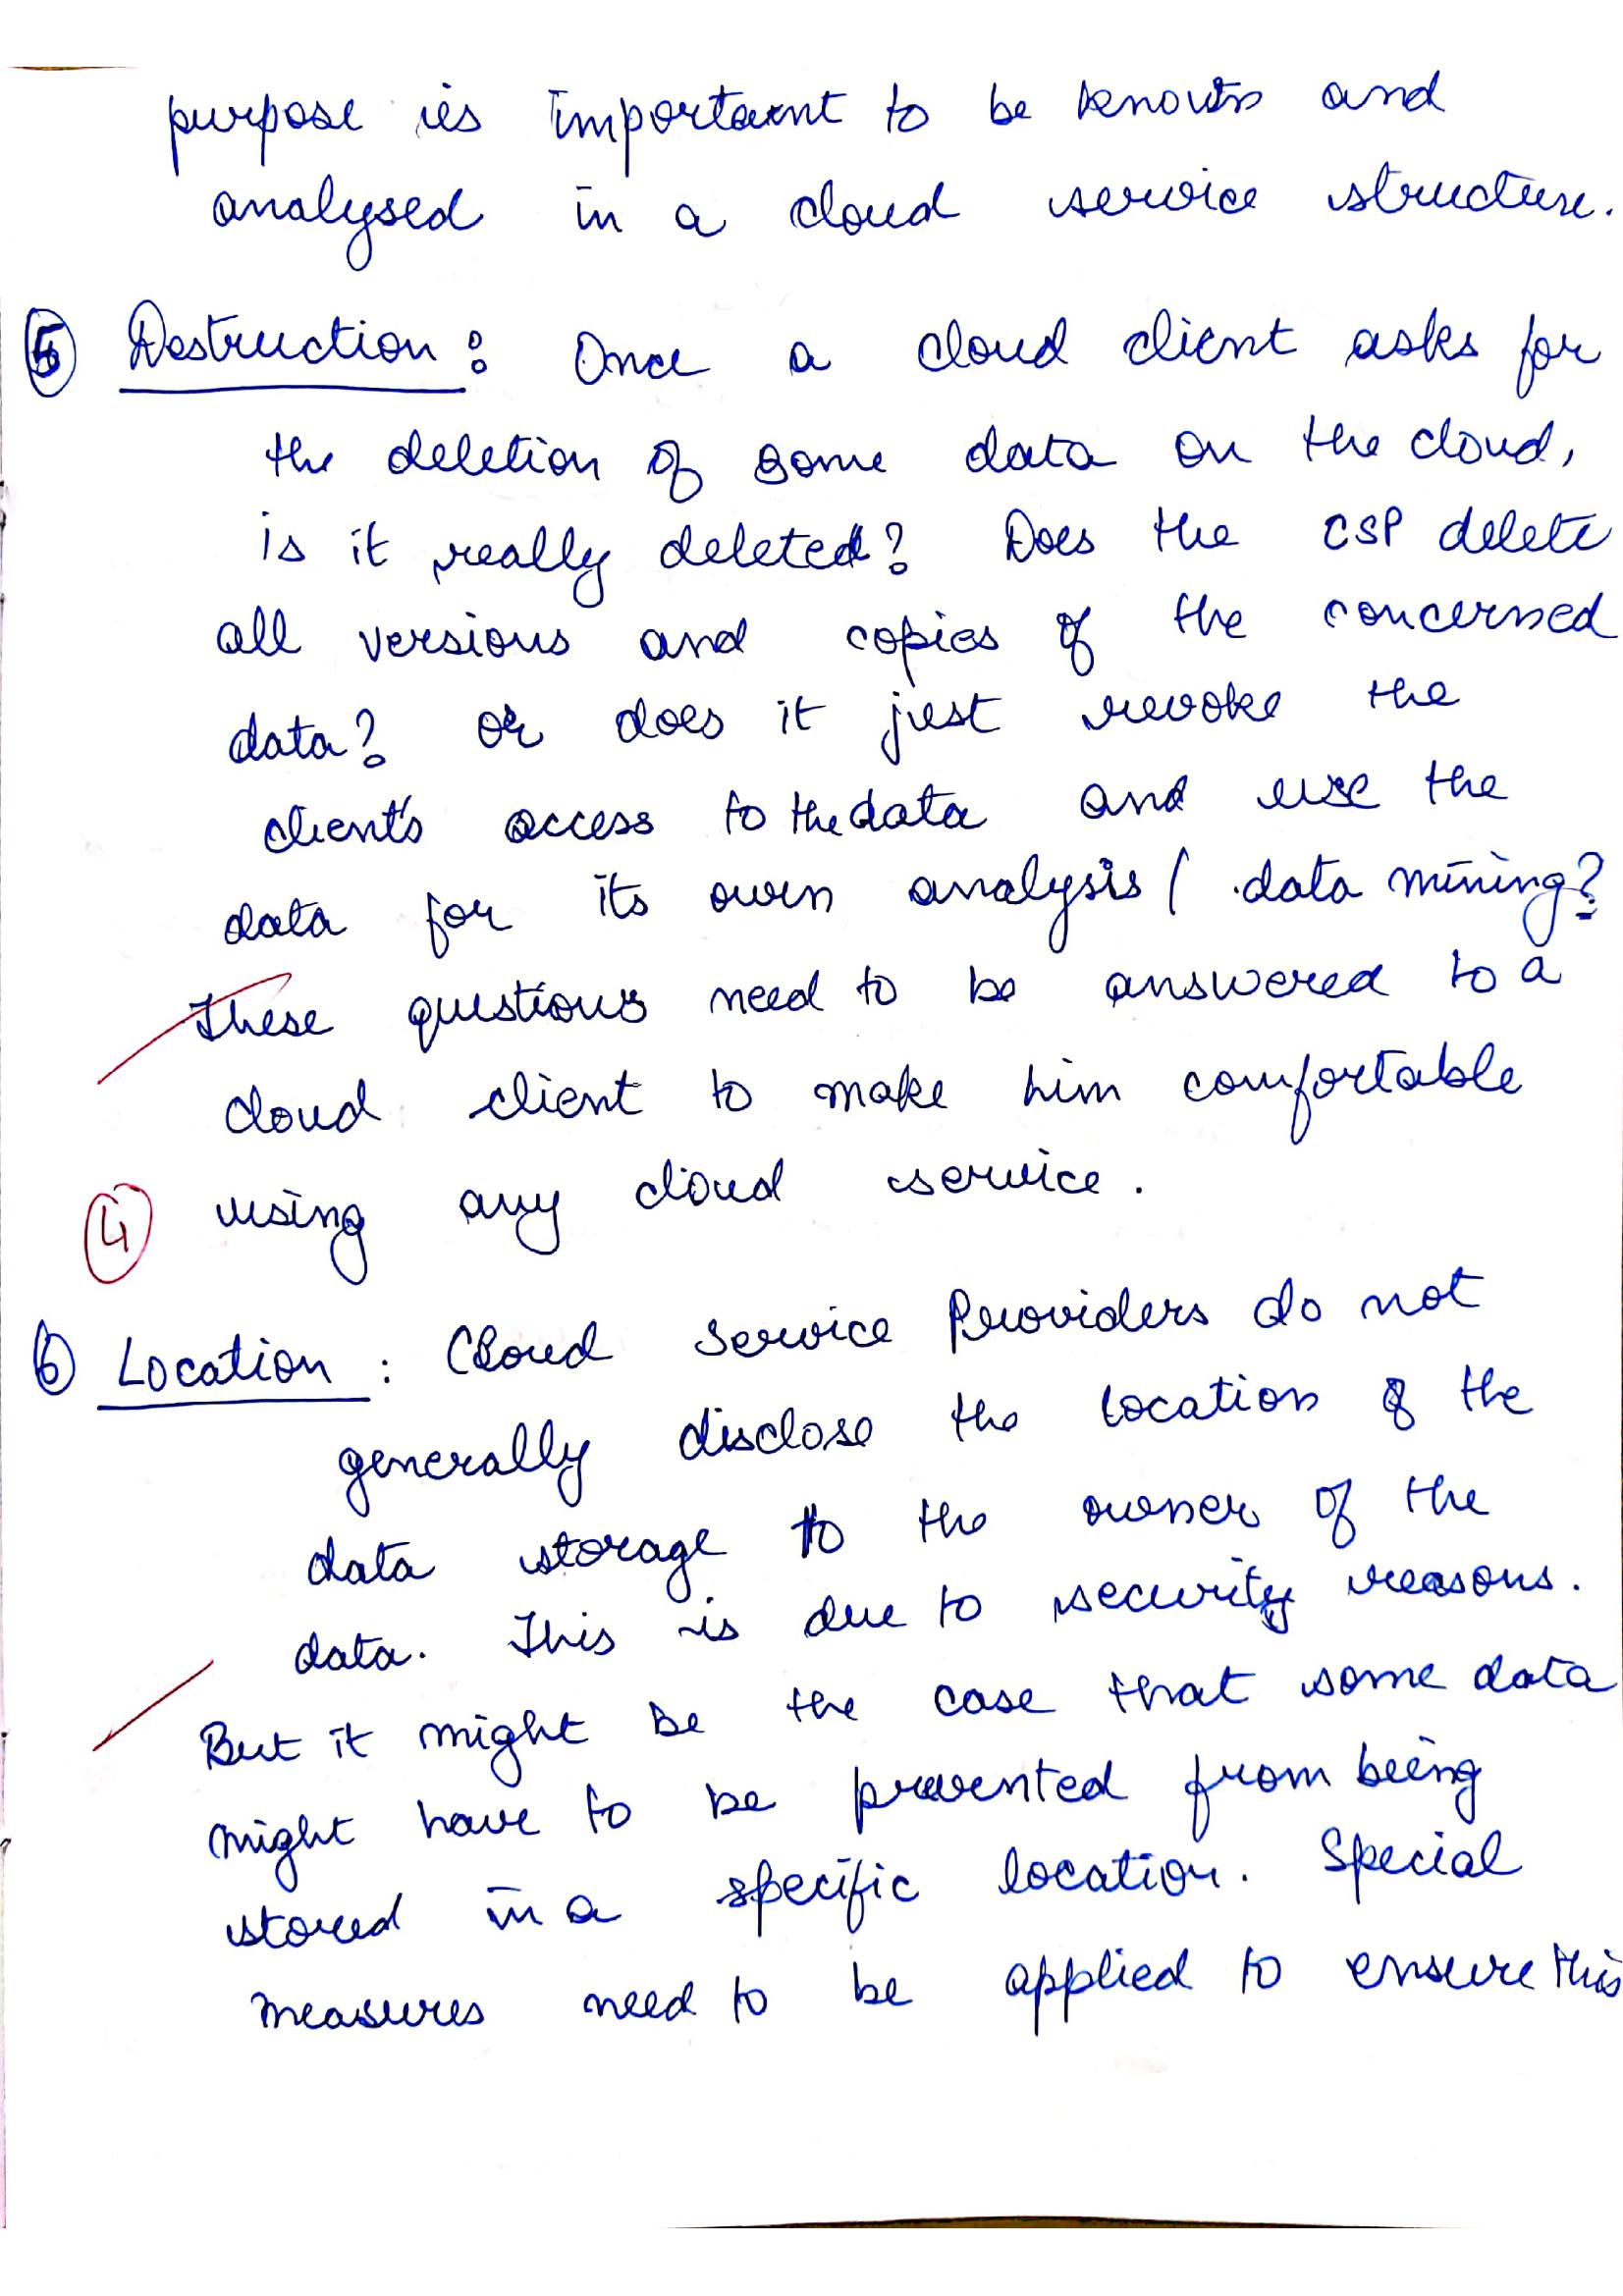 purpose is important to be known and
analysed in a cloud service structure.
⑤ Destruction : Once a cloud client asks for
the deletion of some data on the cloud,
is it really deleted? Does the CSP delete
all versions and copies of the concerned
data? or does it just revoke the
client's access to the data and use the
data for its own analysis / data mining?
These questions need to be answered to a
cloud client to make him comfortable
④ using any cloud service.
⑥ Location : Cloud Service Providers do not
generally disclose the location of the
data storage to the owner of the
data. This is due to security reasons.
But it might be the case that some data
might have to be prevented from being
stored in a specific location. Special
measures need to be applied to ensure this